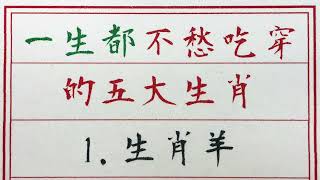 一生都不愁吃穿
的五大生肖
1.生肖羊